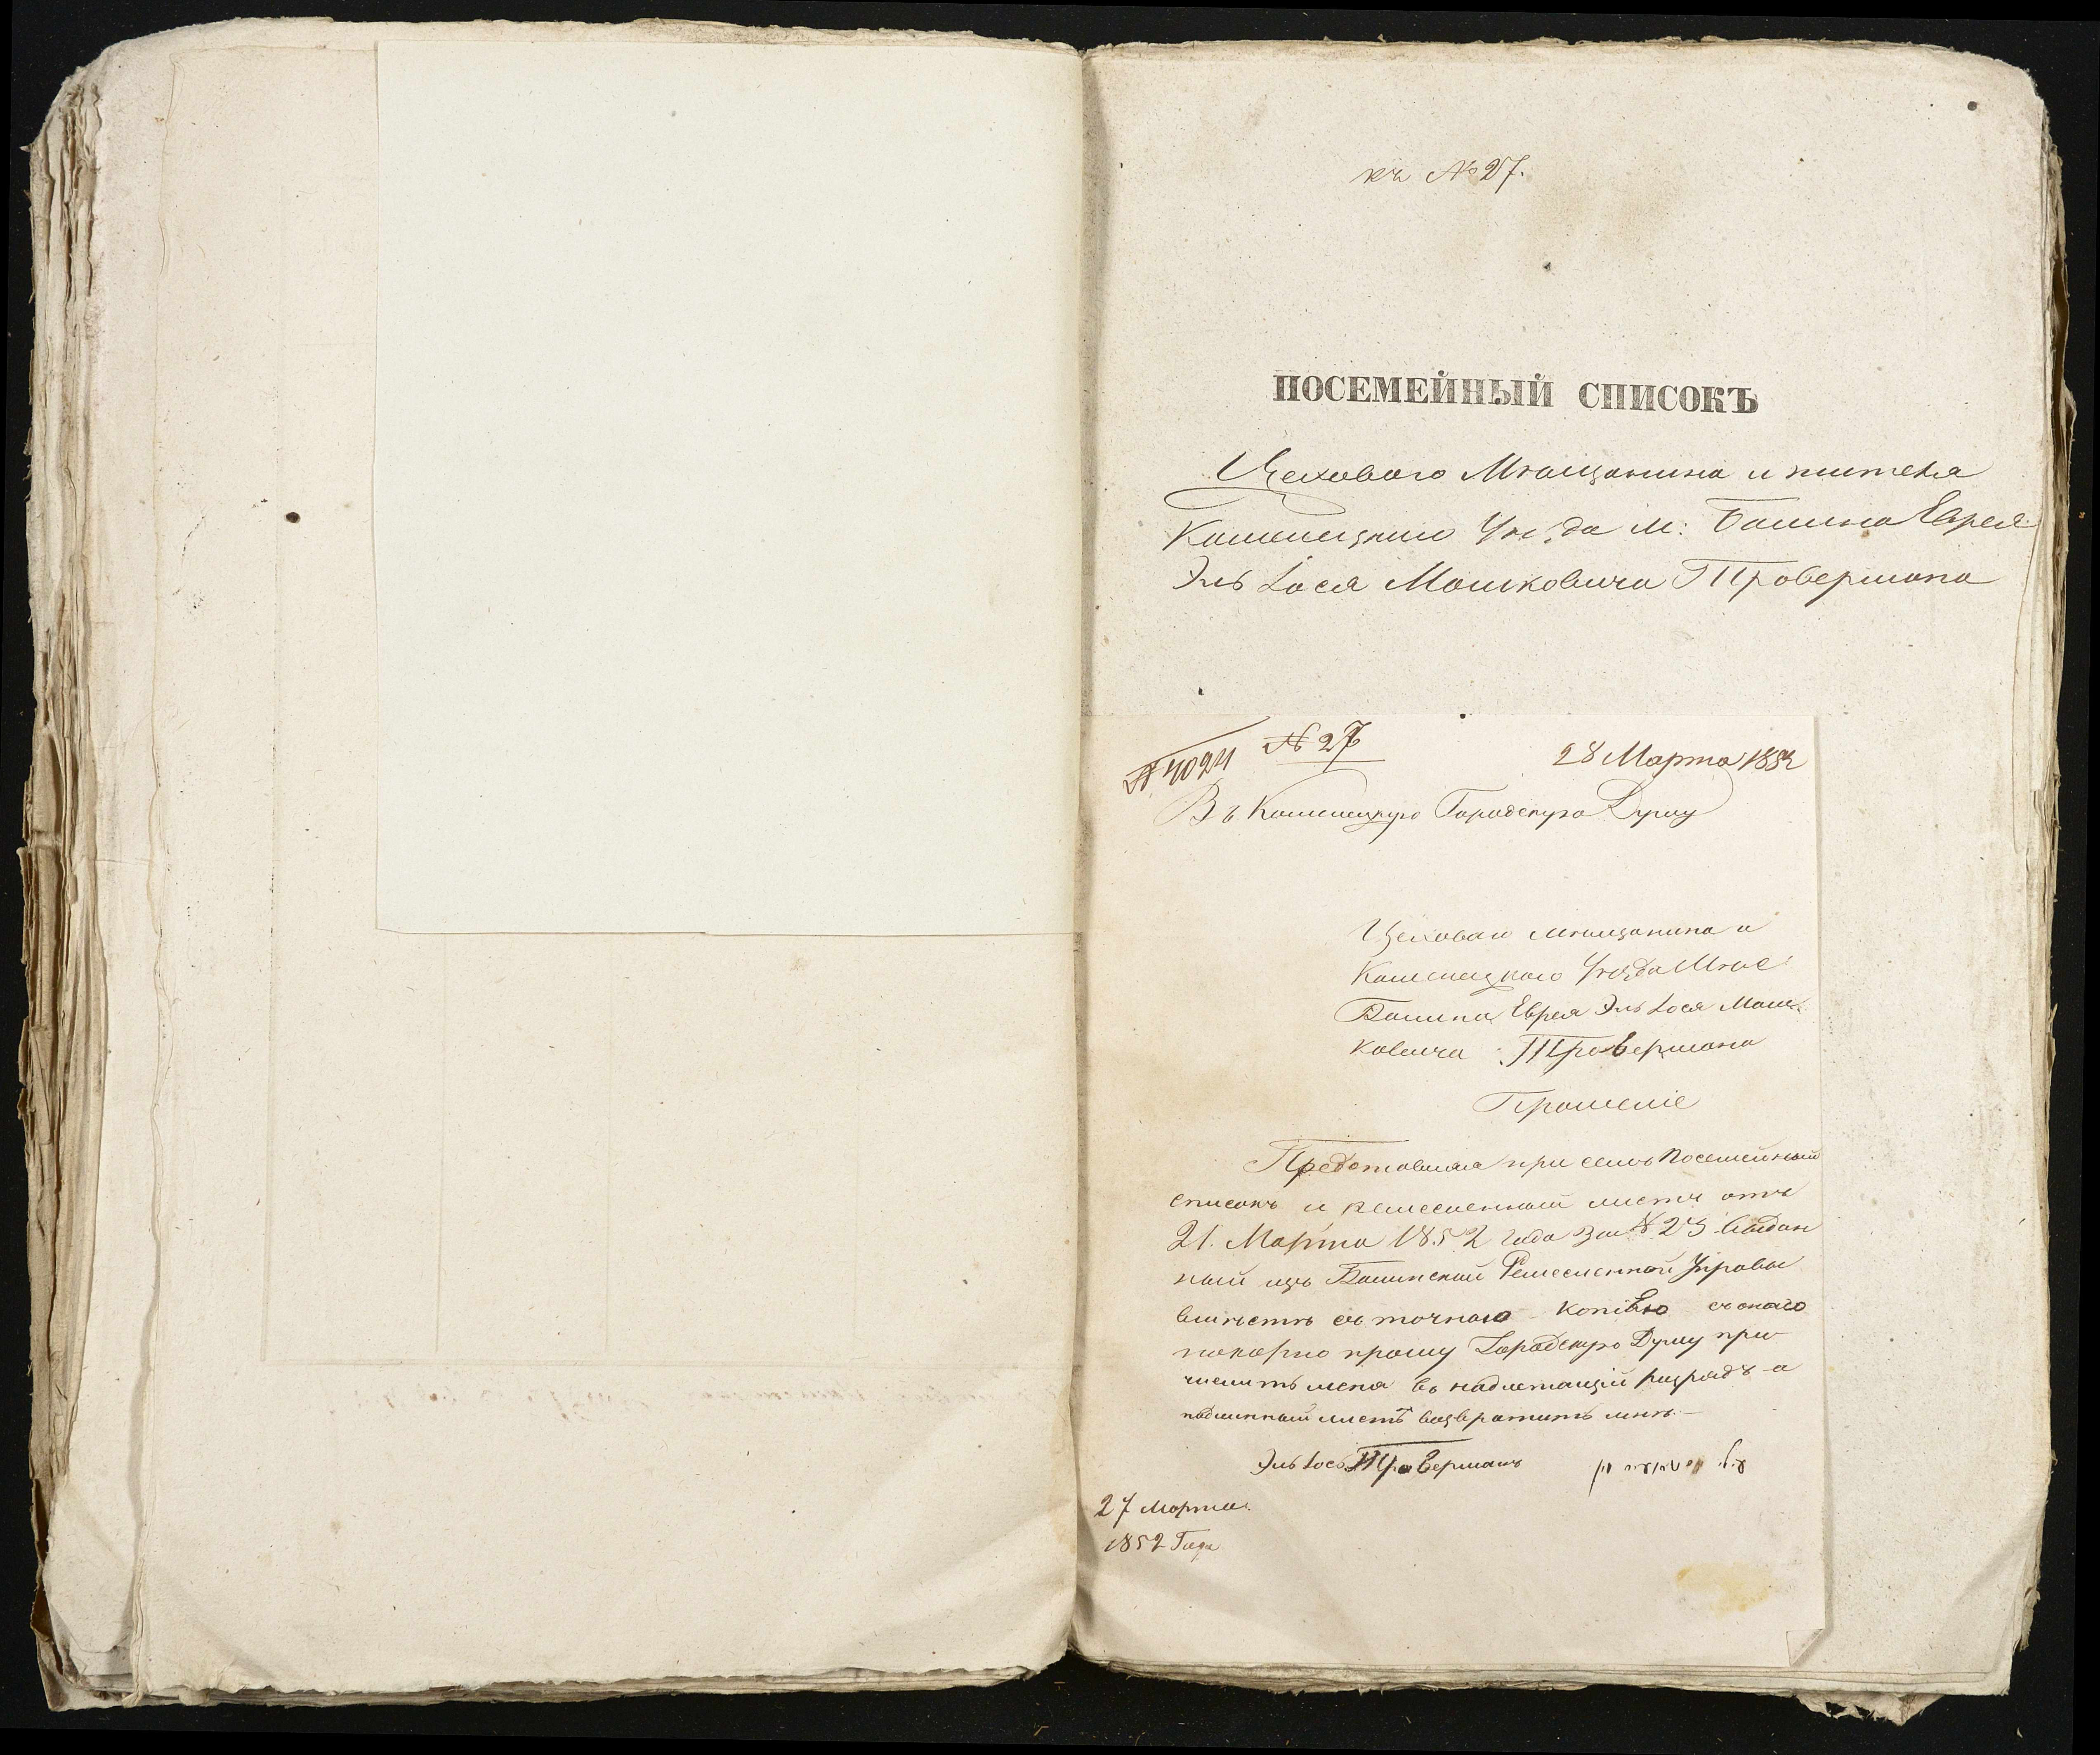 къ №27.
ПОСЕМЕЙНЫЙ СПИСОКЪ
Цеховаго Мѣщанина и жителя
Каменецкаго Уѣзда м: Еврея
Эль Іося Мошковича Провермана
№ 4024 № 27 28 Марта 1852
Въ Каменецкую Городскую Думу
Цеховаго мѣщанина и
Каменецкаго Уѣзда Мѣс
Еврея Эль Іося Мош
ковича Провермана
Прошеніе
Предствавляя при семъ Посемейный
списокъ и ремесленный листъ отъ
21. Марта 1852 года За № 25 выдан
ный изъ Ремесленной Управы
вмѣстѣ съ точною копіею съ онаго
покорно прошу Городскую Думу при
числить меня въ надлежащій разрядъ а
подлинный листъ возвратить мнѣ.—
Эль Іось Проверманъ
27 Марта
1852 Года